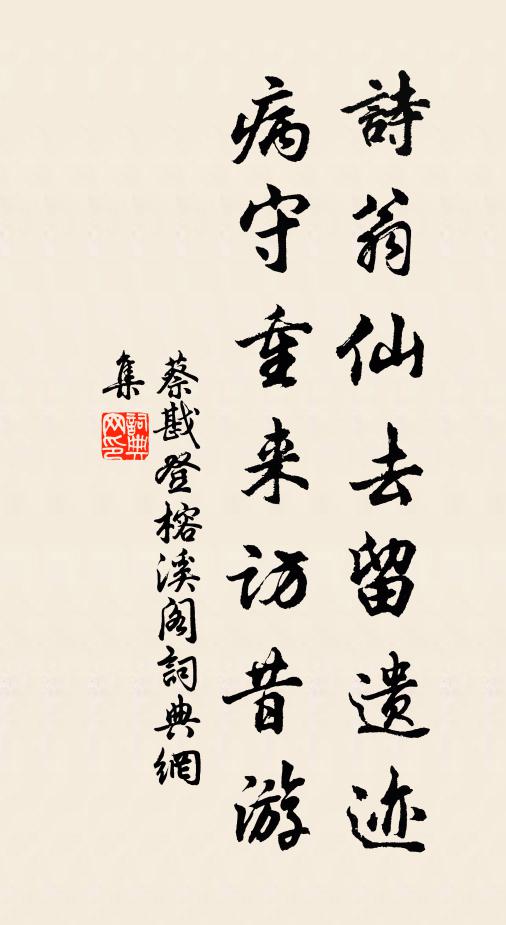 詩翁仙去留遗迹
病守重来访昔游
蔡戡登榕溪阁詞典網
集
詞典
网印